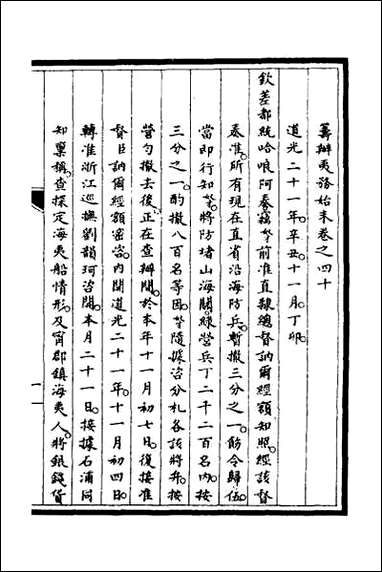 籌辦夷務始末卷之四十
道光二十一年。辛丑。十一月。丁卯。
欽差都統哈哴阿奏。竊奴才等前准直隸總督訥爾經額知照。經該督
奏准。所有現在直省沿海防兵。暫撤三分之一。飭令歸伍。
當即行知奴才等將防堵山海關。綠營兵丁二千二百名內。按
三分之一。酌撤八百名等因。奴才等隨據咨分札各該將弁。按
營勻撤去後。正在查辦間。於本年十一月初七日。復接准
督臣訥爾經額密咨。內開道光二十一年。十一月初四日。
轉准浙江巡撫劉韻珂咨開。本月二十一日。接據石浦同
知稟稱。查探定海夷船情形。及甯郡鎮海夷人。將銀錢貨